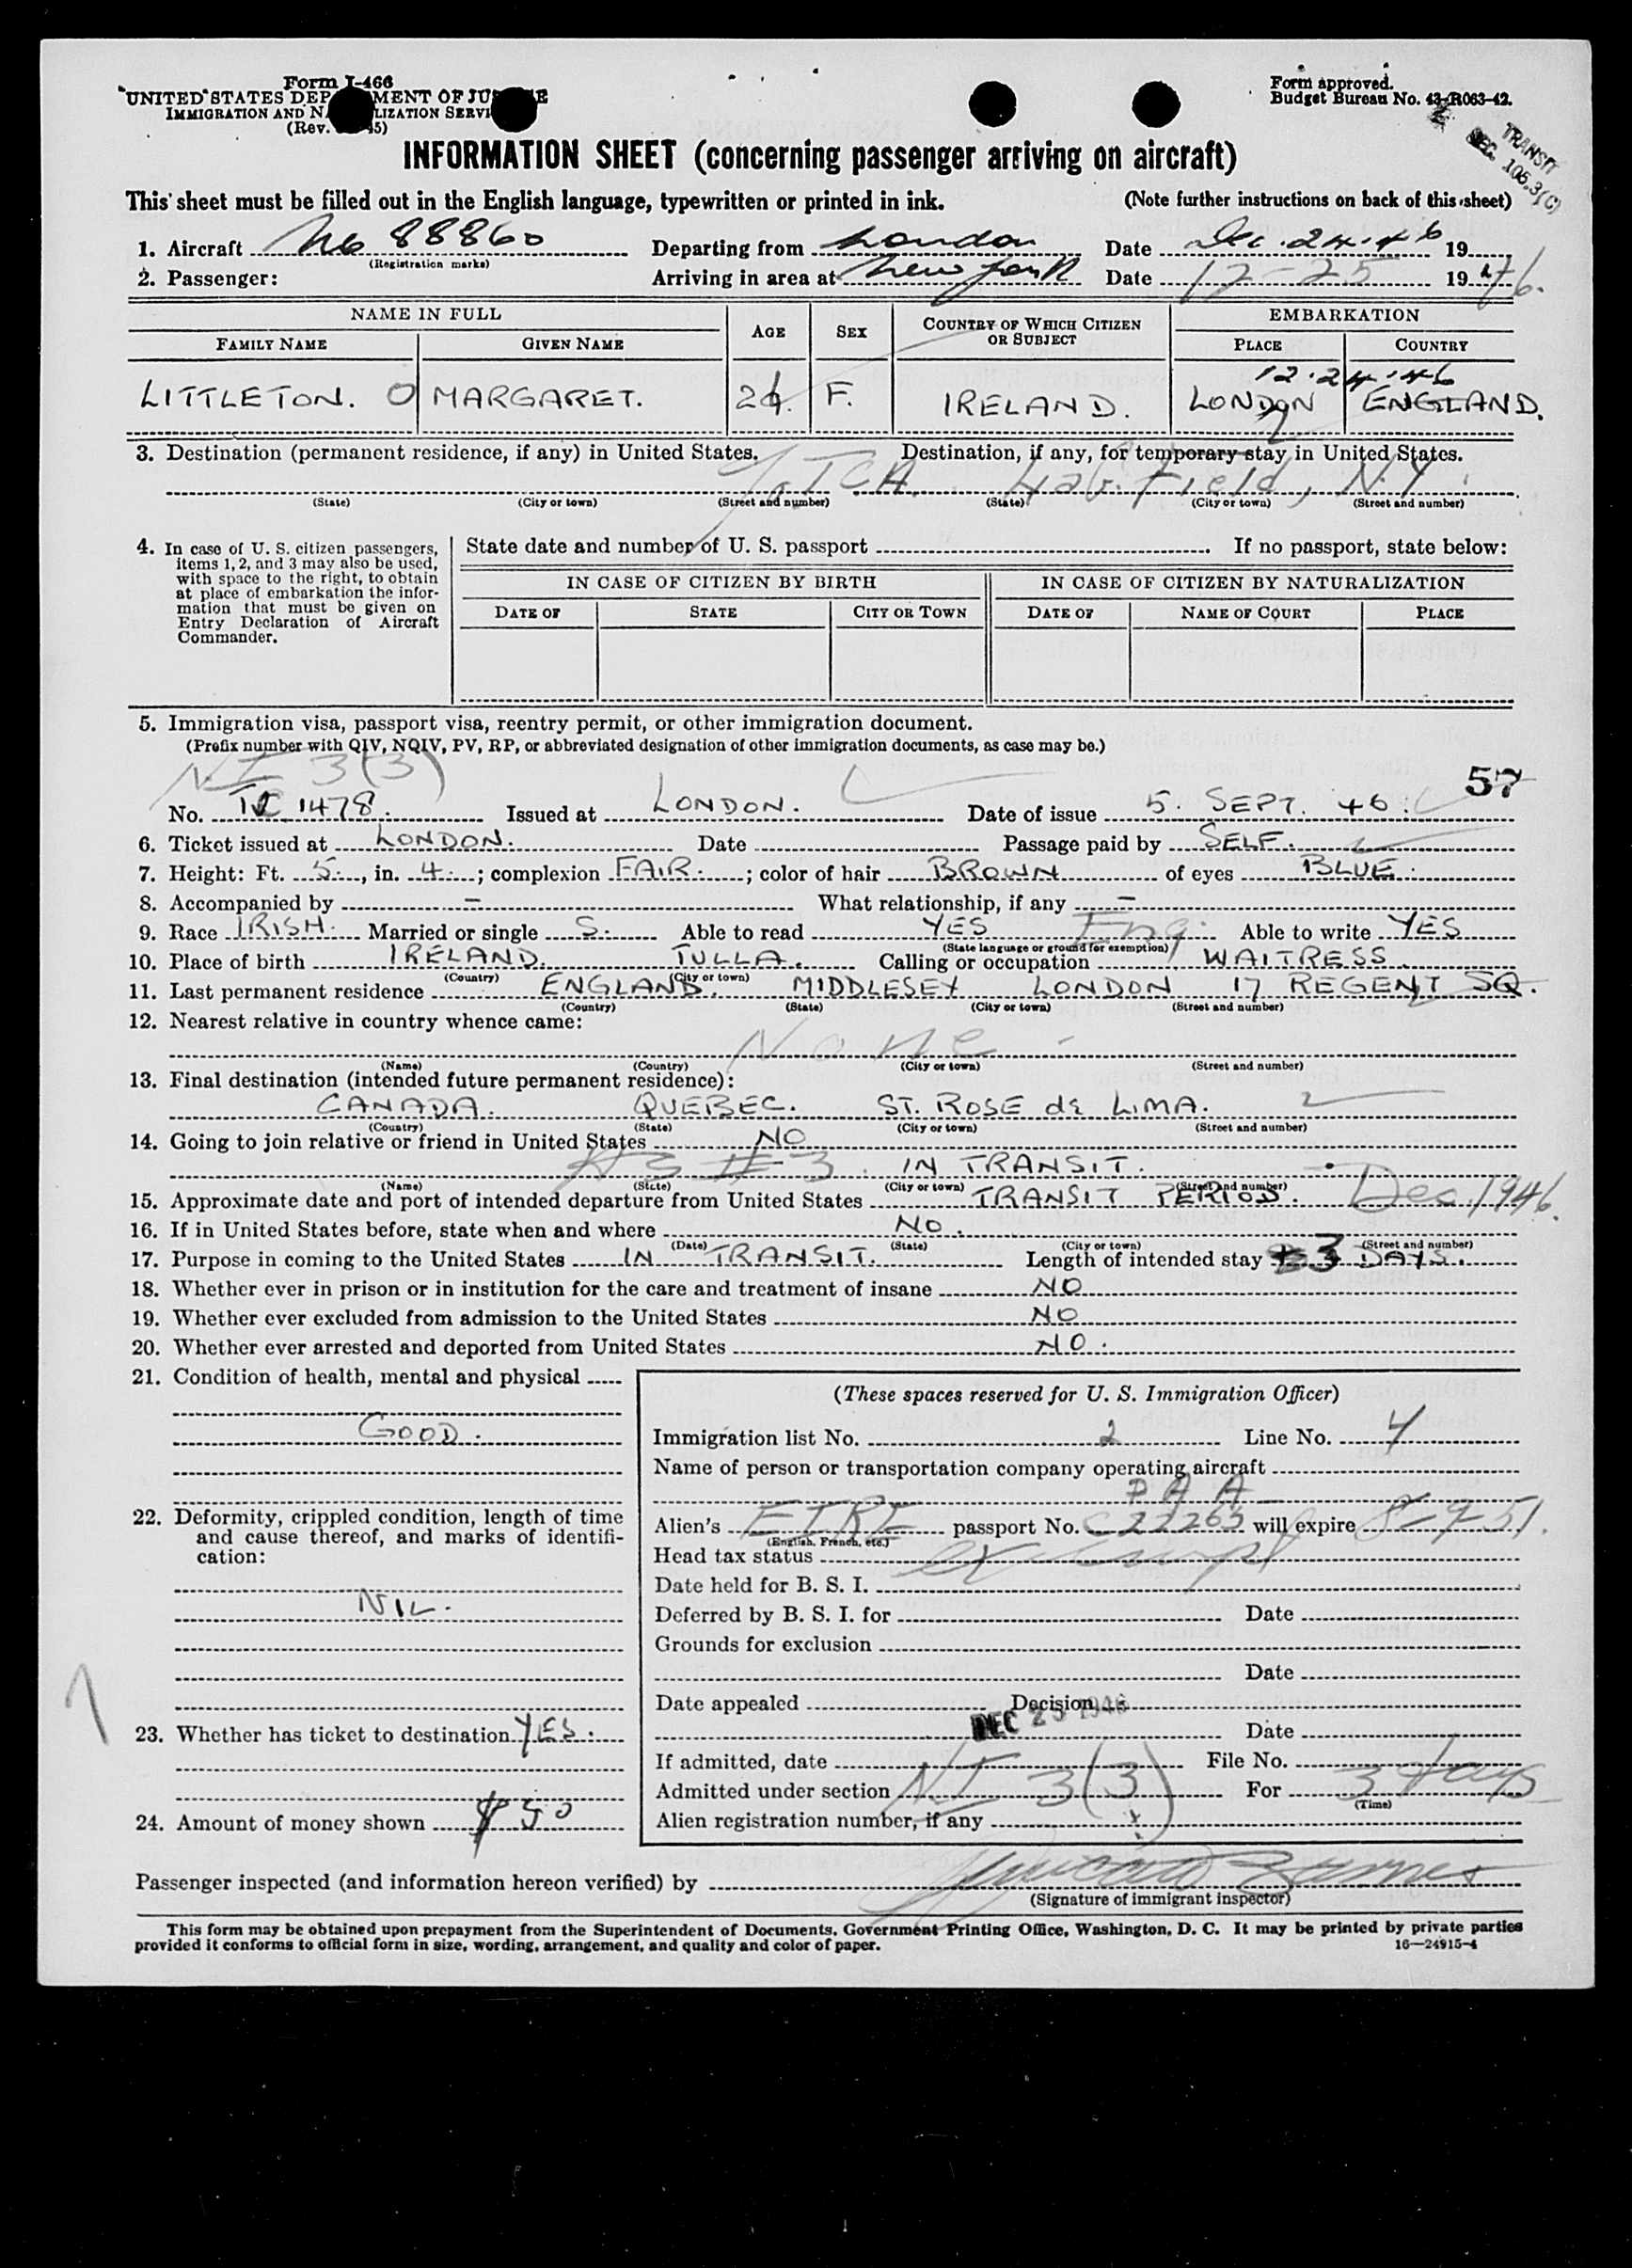 Form I-466
UNITED STATES DEP MENT OF JU E
IMMIGRATION AND N LIZATION SERVI
(Rev. 45)
Form approved.
Budget Bureau No. 43-R063-42.
TRANSIT
SEC. 105.3(C)
INFORMATION SHEET (concerning passenger arriving on aircraft)
This sheet must be filled out in the English language, typewritten or printed in ink. (Note further instructions on back of this sheet)
1. Aircraft Nc 88860 Departing from London Date Dec. 24. 46 19
(Registration marks)
2. Passenger: Arriving in area at New York Date 12-25 1946.
NAME IN FULL AGE SEX COUNTRY OF WHICH CITIZEN OR SUBJECT EMBARKATION
FAMILY NAME GIVEN NAME PLACE COUNTRY
12.24.46
LITTLETON. O MARGARET. 26. F. IRELAND. LONDON ENGLAND.
3. Destination (permanent residence, if any) in United States. Destination, if any, for temporary stay in United States.
TCA. LaG. Field, N.Y.
(State) (City or town) (Street and number) (State) (City or town) (Street and number)
4. In case of U. S. citizen passengers, items 1, 2, and 3 may also be used, with space to the right, to obtain at place of embarkation the information that must be given on Entry Declaration of Aircraft Commander.
State date and number of U. S. passport . If no passport, state below:
IN CASE OF CITIZEN BY BIRTH IN CASE OF CITIZEN BY NATURALIZATION
DATE OF STATE CITY OR TOWN DATE OF NAME OF COURT PLACE
5. Immigration visa, passport visa, reentry permit, or other immigration document.
(Prefix number with QIV, NQIV, PV, RP, or abbreviated designation of other immigration documents, as case may be.)
NI 3(3)
57
No. TC 1478. Issued at LONDON. Date of issue 5. SEPT. 46.
6. Ticket issued at LONDON. Date Passage paid by SELF.
7. Height: Ft. 5., in. 4.; complexion FAIR.; color of hair BROWN of eyes BLUE.
8. Accompanied by - What relationship, if any -
9. Race IRISH. Married or single S. Able to read YES Eng. Able to write YES
(State language or ground for exemption)
10. Place of birth IRELAND. TULLA. Calling or occupation WAITRESS.
(Country) (City or town)
11. Last permanent residence ENGLAND. MIDDLESEX LONDON 17 REGENT SQ.
(Country) (State) (City or town) (Street and number)
12. Nearest relative in country whence came:
None -
(Name) (Country) (City or town) (Street and number)
13. Final destination (intended future permanent residence):
CANADA. QUEBEC. ST. ROSE de LIMA.
(Country) (State) (City or town) (Street and number)
14. Going to join relative or friend in United States NO
IN TRANSIT.
(Name) (State) (City or town) (Street and number)
15. Approximate date and port of intended departure from United States TRANSIT PERIOD. Dec. 1946.
16. If in United States before, state when and where NO.
(Date) (State) (City or town) (Street and number)
17. Purpose in coming to the United States IN TRANSIT. Length of intended stay 3 DAYS.
18. Whether ever in prison or in institution for the care and treatment of insane NO
19. Whether ever excluded from admission to the United States NO
20. Whether ever arrested and deported from United States NO.
21. Condition of health, mental and physical
GOOD.
22. Deformity, crippled condition, length of time and cause thereof, and marks of identification:
NIL.
23. Whether has ticket to destination YES.
24. Amount of money shown $ 50
(These spaces reserved for U. S. Immigration Officer)
Immigration list No. 2 Line No. 4
Name of person or transportation company operating aircraft
P A A
Alien's EIRE passport No. C 22263 will expire 8-9-51.
(English, French, etc.)
Head tax status exempt
Date held for B. S. I.
Deferred by B. S. I. for Date
Grounds for exclusion
Date
Date appealed Decision
DEC 25 1946
Date
If admitted, date File No.
Admitted under section NI 3(3) For 3 days
(Time)
Alien registration number, if any
Passenger inspected (and information hereon verified) by
(Signature of immigrant inspector)
This form may be obtained upon prepayment from the Superintendent of Documents, Government Printing Office, Washington, D. C. It may be printed by private parties
provided it conforms to official form in size, wording, arrangement, and quality and color of paper. 16—24915-4